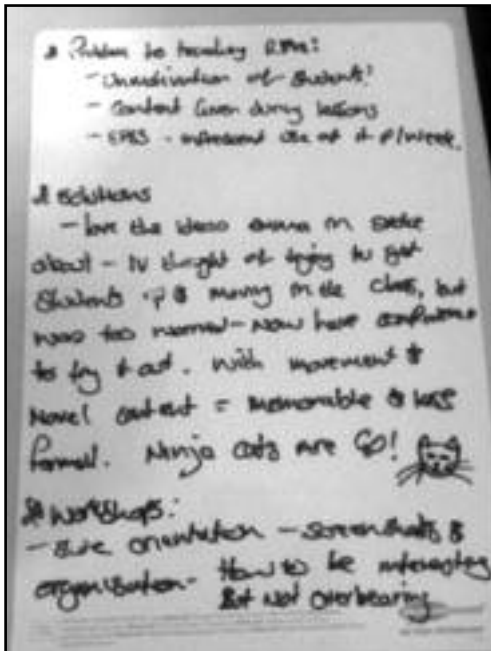 * Problem to teaching
- Unmotivation of students!
- Content given during lessons
- infrequent use of it /week.
* Solutions
- love the ideas spoke
about - I'd thought of trying to get
students up & moving in the class, but
was too worried - Now have confidence
to try it out. With movement &
Novel content = Memorable & less
formal. Ninja cats are GO!
* Workshops:
- Site orientation - Screenshots &
organisation - How to be interesting
But Not Overbearing